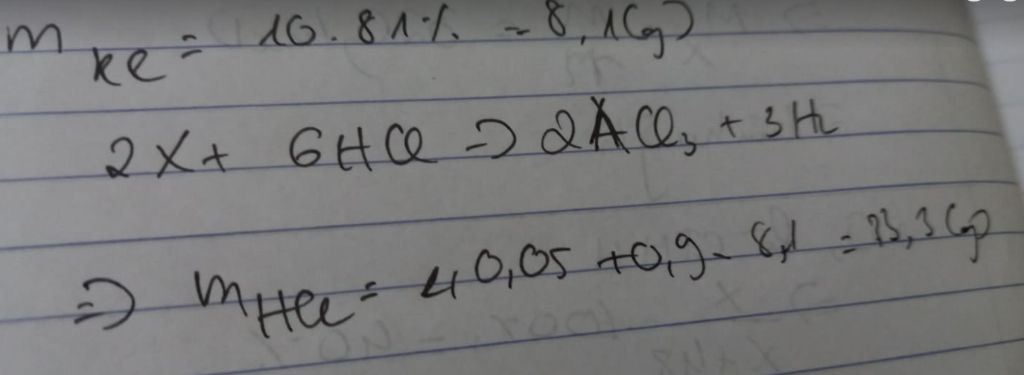 m kl = 10.81% = 8,1(g)
2X + 6HCl => 2XCl3 + 3H2
=> mHCl = 40,05 + 0,9 - 8,1 = 33,3(g)